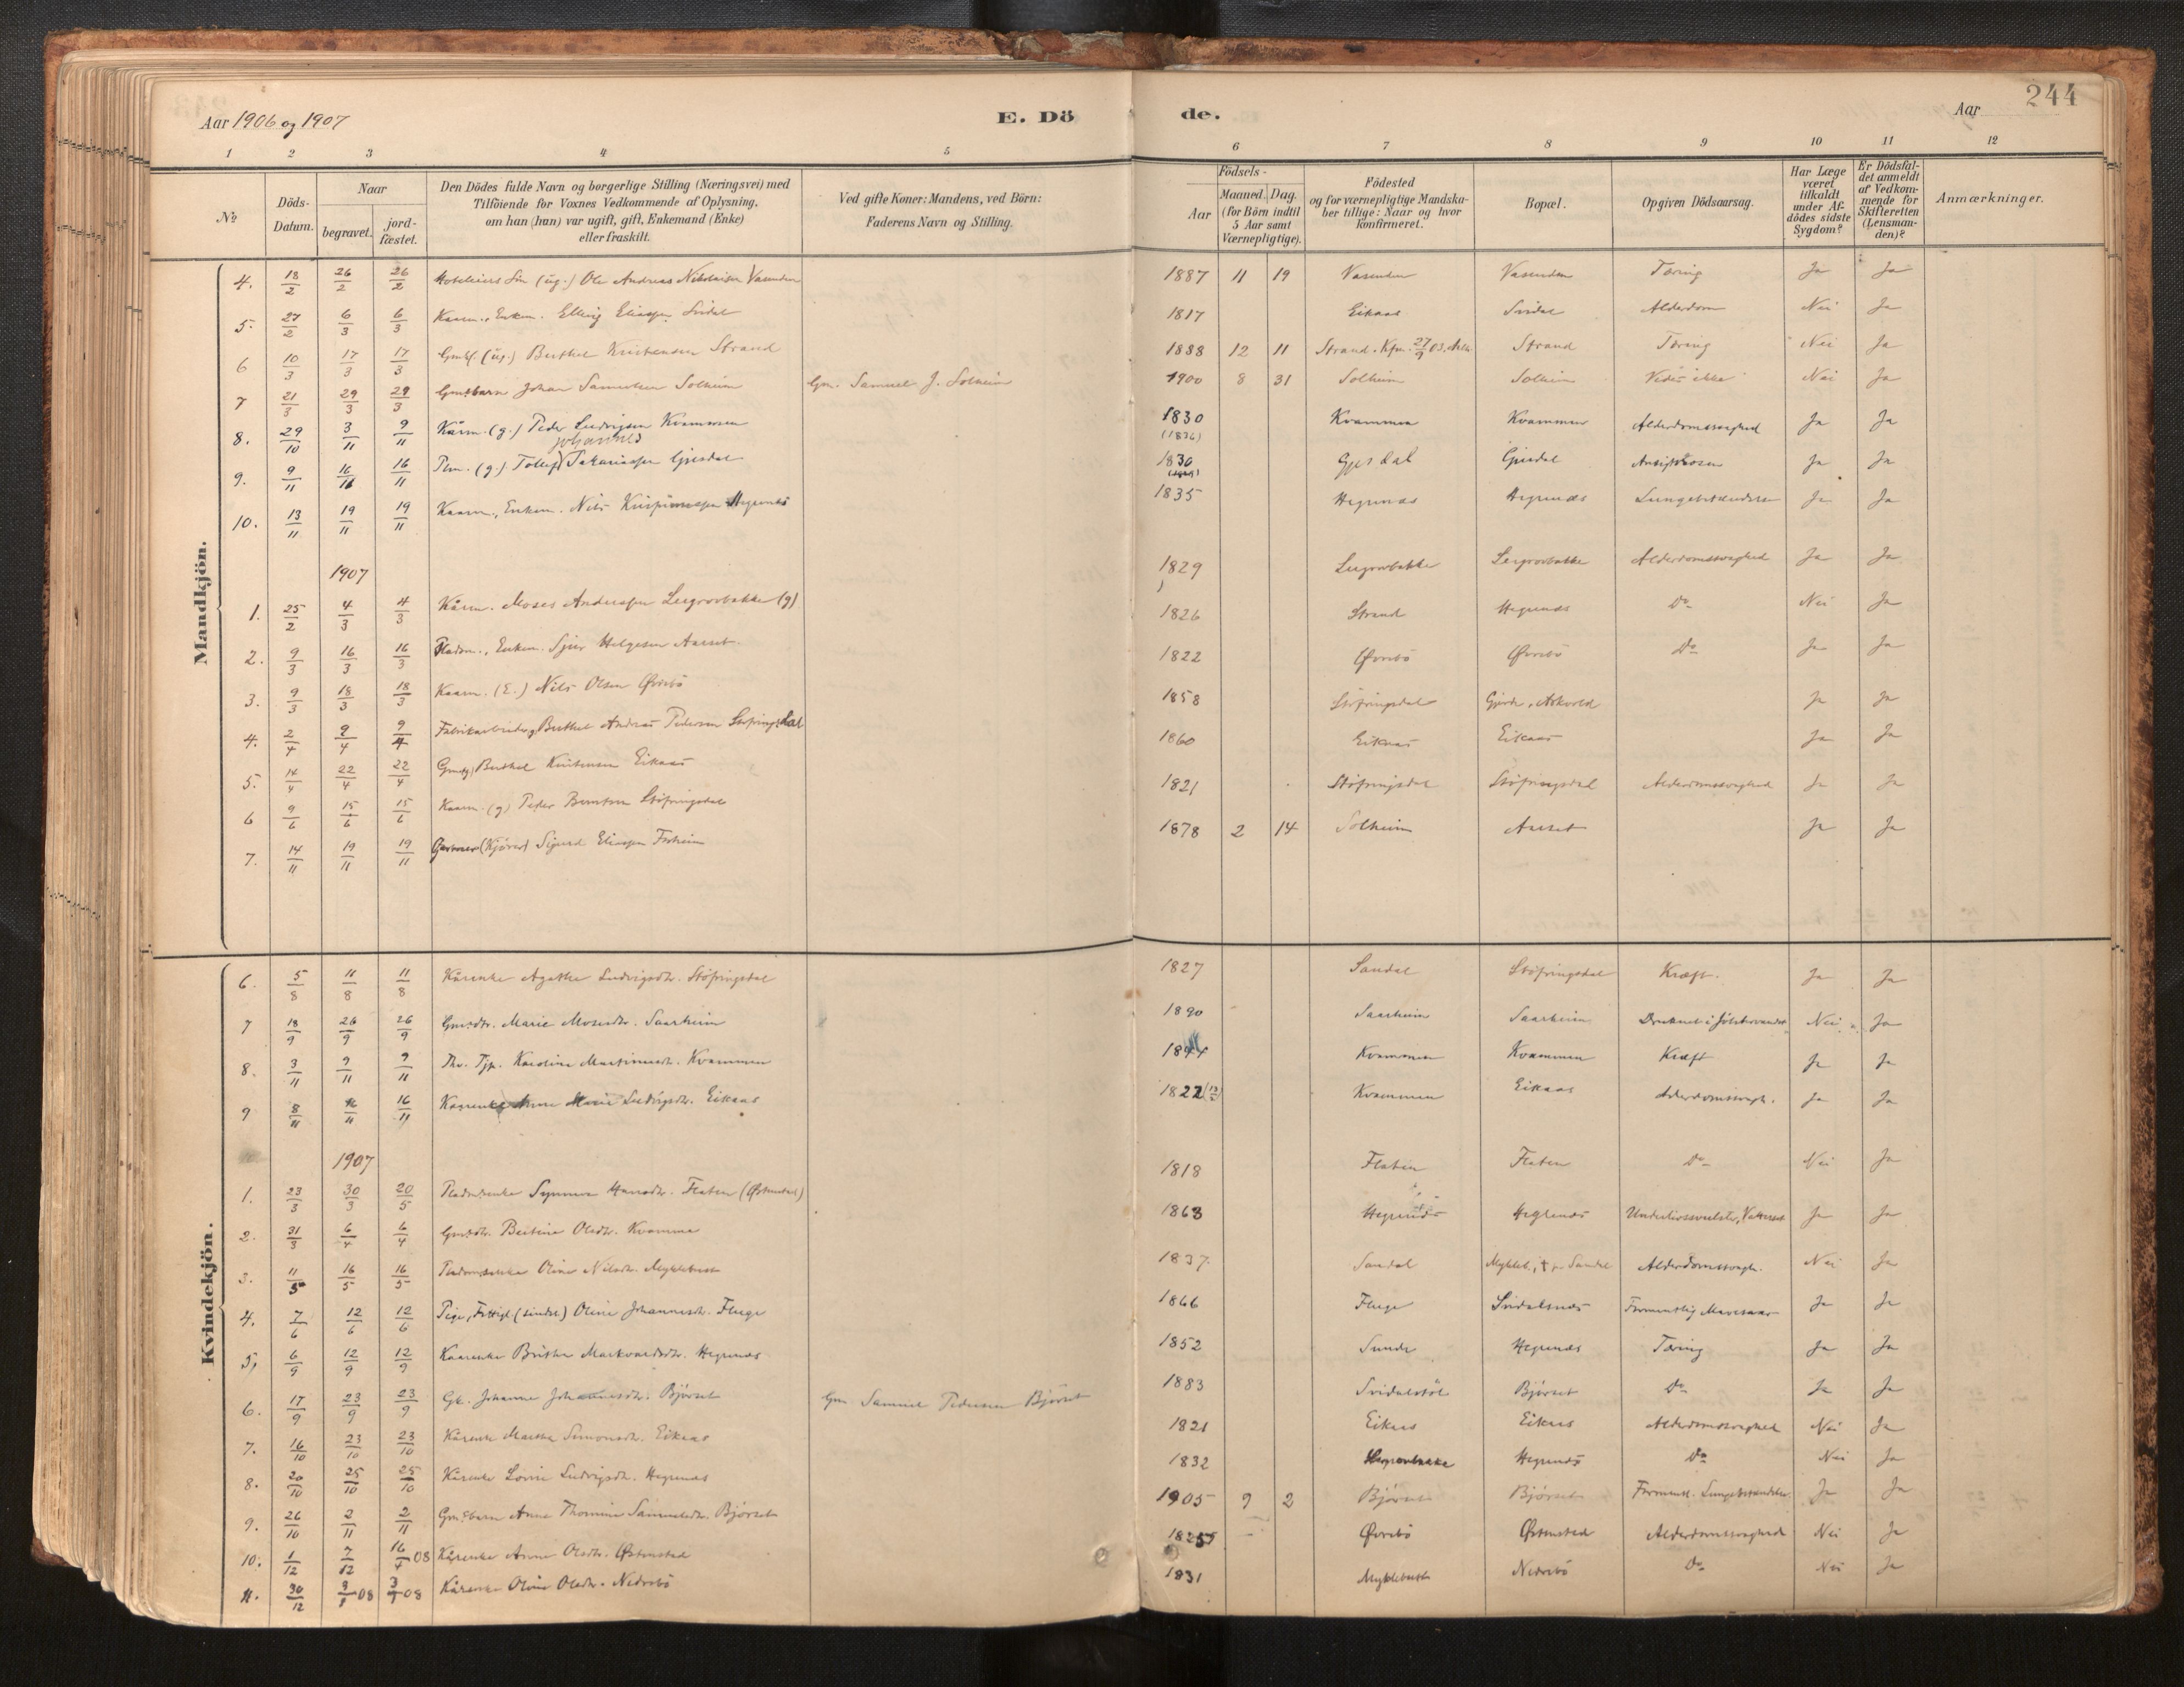 244
Aar 1906 og 1907
E. Dö de.
Aar
1 2 3 4 5 6 7 8 9 10 11 12
No
Döds-Datum.
Naar
begravet. jord-fæstet.
Den Dödes fulde Navn og borgerlige Stilling (Næringsvei) med
Tilföiende for Voxnes Vedkommende af Oplysning,
om han (hun) var ugift, gift, Enkemand (Enke)
eller fraskilt.
Ved gifte Koner: Mandens, ved Börn:
Faderens Navn og Stilling.
Födsels-
Aar
Maaned. Dag.
(for Börn indtil
5 Aar samt
Værnepligtige).
Födested
og for værnepligtige Mandska-
ber tillige: Naar og hvor
konfirmeret.
Bopæl.
Opgiven Dödsaarsag.
Har Læge
været
tilkaldt
under Af-
dödes sidste
Sygdom?
Er Dödsfal-
det anmeldt
af Vedkom-
mende for
Skifteretten
(Lensman-
den)?
Anmærkninger.
Mandkjön.
4. 18/2 26/2 26/2 Søn (ug.) Ole Andreas Nikolaisen Vasenden 1887 11 19 Vasenden Vasenden Tæring Ja Ja
5. 27/2 6/3 6/3 Kaarm., Enkem. Elling Eliassen Svidal 1817 Eikaas Svidal Alderdom Nei Ja
6 10/3 17/3 17/3 Gmbf. (ug.) Berthel Kristensen Strand 1888 12 11 Strand. Kfm. 27/9 03. Strand Tæring Nei Ja
7 21/3 29/3 29/3 Gmsbarn Johan Samuelsen Solheim Gm. Samuel J. Solheim 1900 8 31 Solheim Solheim Vides ikke Nei Ja
8. 29/10 3/11 9/11 Kårm. (g.) Peder Ludvigsen Kvammen 1830 (1836) Kvammen Kvammen Alderdomssvaghed Ja Ja
Johannes
9. 9/11 16/11 16/11 Plm. (g.) Tollef Sakariassen Gjesdal 1830 Gjesdal Gjesdal Ansigtsrosen Ja Ja
10. 13/11 19/11 19/11 Kaarm., Enkem. Nils Hegrenæs 1835 Hegrenæs Hegrenæs Lungebetændelse Ja Ja
1907
1. 25/2 4/3 4/3 Kårm. Moses Anderssen Legrovbakke (g) 1829 Legrovbakke Legrovbakke Alderdomssvaghed Ja Ja
2. 9/3 16/3 16/3 Pladsm., Enkem. Sjur Helgesen Aasset. 1826 Strand Hegrenæs Do Nei Ja
3. 9/3 18/3 18/3 Kaarm. (E.) Nils Olsen Øvrebø 1822 Øvrebø Øvrebø Do Ja Ja
4. 2/4 9/4 9/4 Fabrikarbeider g Berthel Andreas Pedersen Støfringsdal 1858 Støfringsdal Gjerde, Askvold Ja Ja
5. 14/4 22/4 22/4 Gm(g) Berthel Kristensen Eikaas 1860 Eikaas Eikaas Ja Ja
6 9/6 15/6 15/6 Kaarm. (g) Peder Bentsen Støfringsdal 1821 Støfringsdal Støfringsdal Alderdomssvaghed Ja Ja
7. 14/11 19/11 19/11 (Kjører) Sigurd Eliassen 1878 2 14 Solheim Aasset Ja Ja
Kvindekjön.
6. 5/8 11/8 11/8 Kårenke Agathe Ludvigsdtr. Støfringsdal 1827 Sandal Støfringsdal Kræft. Ja Ja
7 18/9 26/9 26/9 Gmsdtr. Marie Mosesdtr. Saarheim 1890 Saarheim Saarheim Druknet i Jølstervandet Nei Ja
8. 3/11 9/11 9/11 Karoline Martinusdtr. Kvammen 1844 Kvammen Kvammen Kræft Ja Ja
9 8/11 16/11 16/11 Kaarenke Anne Marie Ludvigsdtr. Eikaas 1822 Kvammen Eikaas Alderdomssvagh. Ja Ja
1907
1. 23/3 30/3 20/5 Pladsm.enke Synneva Hansdtr. Flaten (Østenstad) 1818 Flaten Flaten Do Nei Ja
2. 31/3 6/4 6/4 Gmsdtr. Bertine Olsdtr. Kvamme 1863 Hegrenæs Hegrenæs Underlivssvulster, Ja Ja
3. 11/5 16/5 16/5 Pladsmsenke Oline Nilsdtr. Myklebust 1837. Sandal Mykleb., † p. Sandal Alderdomssvagh. Nei Ja
4. 7/6 12/6 12/6 Pige, Fattigl. (sindsl.) Oline Johannesdtr. Fluge 1866 Fluge Svidalsnæs Formentlig Mavesaar Ja Ja
5, 6/9 12/9 12/9 Kaarenke Brithe Markvardsdtr. Hegrenæs 1852 Sunde Hegrenæs Tæring Ja Ja
6. 17/9 23/9 23/9 Gk. Johanne Johannesdtr. Bjørset Gm Samuel Pedersen Bjørset 1883 Svidalstøl Bjørset Do Ja Ja
7. 16/10 23/10 23/10 Kårenke Marthe Simonsdtr. Eikaas 1821 Eikaas Eikaas Alderdomssvaghed Nei Ja
8. 20/10 25/10 25/10 Kårenke Lovise Ludvigsdtr. Hegrenæs 1832 Hegrenæs Do Nei Ja
9. 26/10 2/11 2/11 Gmsbarn Anne Thomine Samuelsdtr. Bjørset 1905 9 2 Bjørset Bjørset Forment. Lungebetændelse Ja Ja
10. 1/12 7/12 16/4 08 Kårenke Anne Olsdtr. Østenstad 1825 Øvrebø Østenstad Alderdomssvaghed Nei Ja
11. 30/12 3/1 08 3/1 08 Kårenke Oline Olsdtr. Nedrebø 1831 Myklebust Nedrebø Do Nei Ja